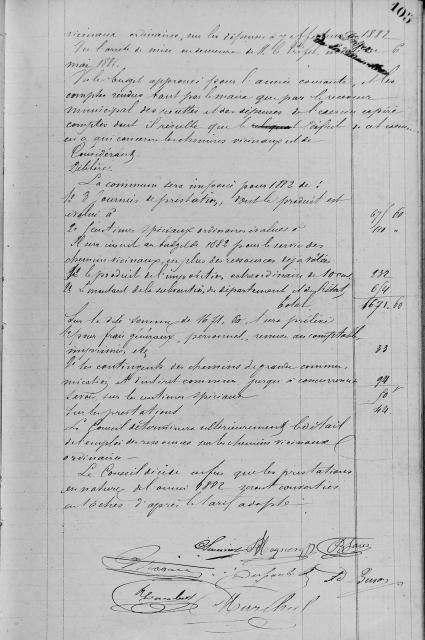 105
vicinaux ordinaires, sur les dépenses à y effectuer en 1882
Vu l'arrêté de mise en demeure de M. le Préfet 6
mai 1881.
Vu le budget approuvé pour l'année courante, et les
comptes rendus tant par le maire que par le receveur
municipal des recettes et des dépenses de l'exercice expiré
comptes dont il résulte que le l'déficit de cet exercice
en ce qui concerne les chemins vicinaux est de
Considérant
Délibère
La commune sera imposée pour 1882 de :
1e 3 Journées de prestation, dont le produit est
évalué à 675 60
2e 5 centimes spéciaux ordinaires évalués à 110 "
Il sera inscrit au budget de 1882 pour le service des
chemins vicinaux, en plus des ressources déjà votées
1e le produit de l'imposition extraordinaire de 10 cmes 232
2e Le montant de la subvention du département et de l'état 654
total 1671 60
Sur la dite somme de 1671. 60, il sera prélevé
1e pour frais généraux, personnel, remise au comptable,
imprimés, etc 33
2e les contingents des chemins de grande commu
nication et d'intérêt commun jusqu'à concurrence 94
Savoir, sur les centimes spéciaux 50
Sur les prestations 44
Le Conseil déterminera ultérieurement le détail
de l'emploi des ressources sur les chemins vicinaux
ordinaires —
Le Conseil décide enfin que les prestations
en nature de l'année 1882 seront converties
en tâches d'après le tarif adopté —
Magnen
Marchal